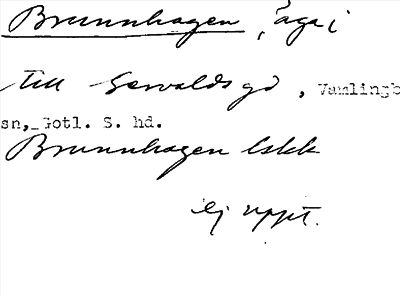 Brunnhagen, äga i
till Gervalds gd, Vamlingb
sn, Gotl. S. hd.
Brunnhagen Lskk
ej uppt.